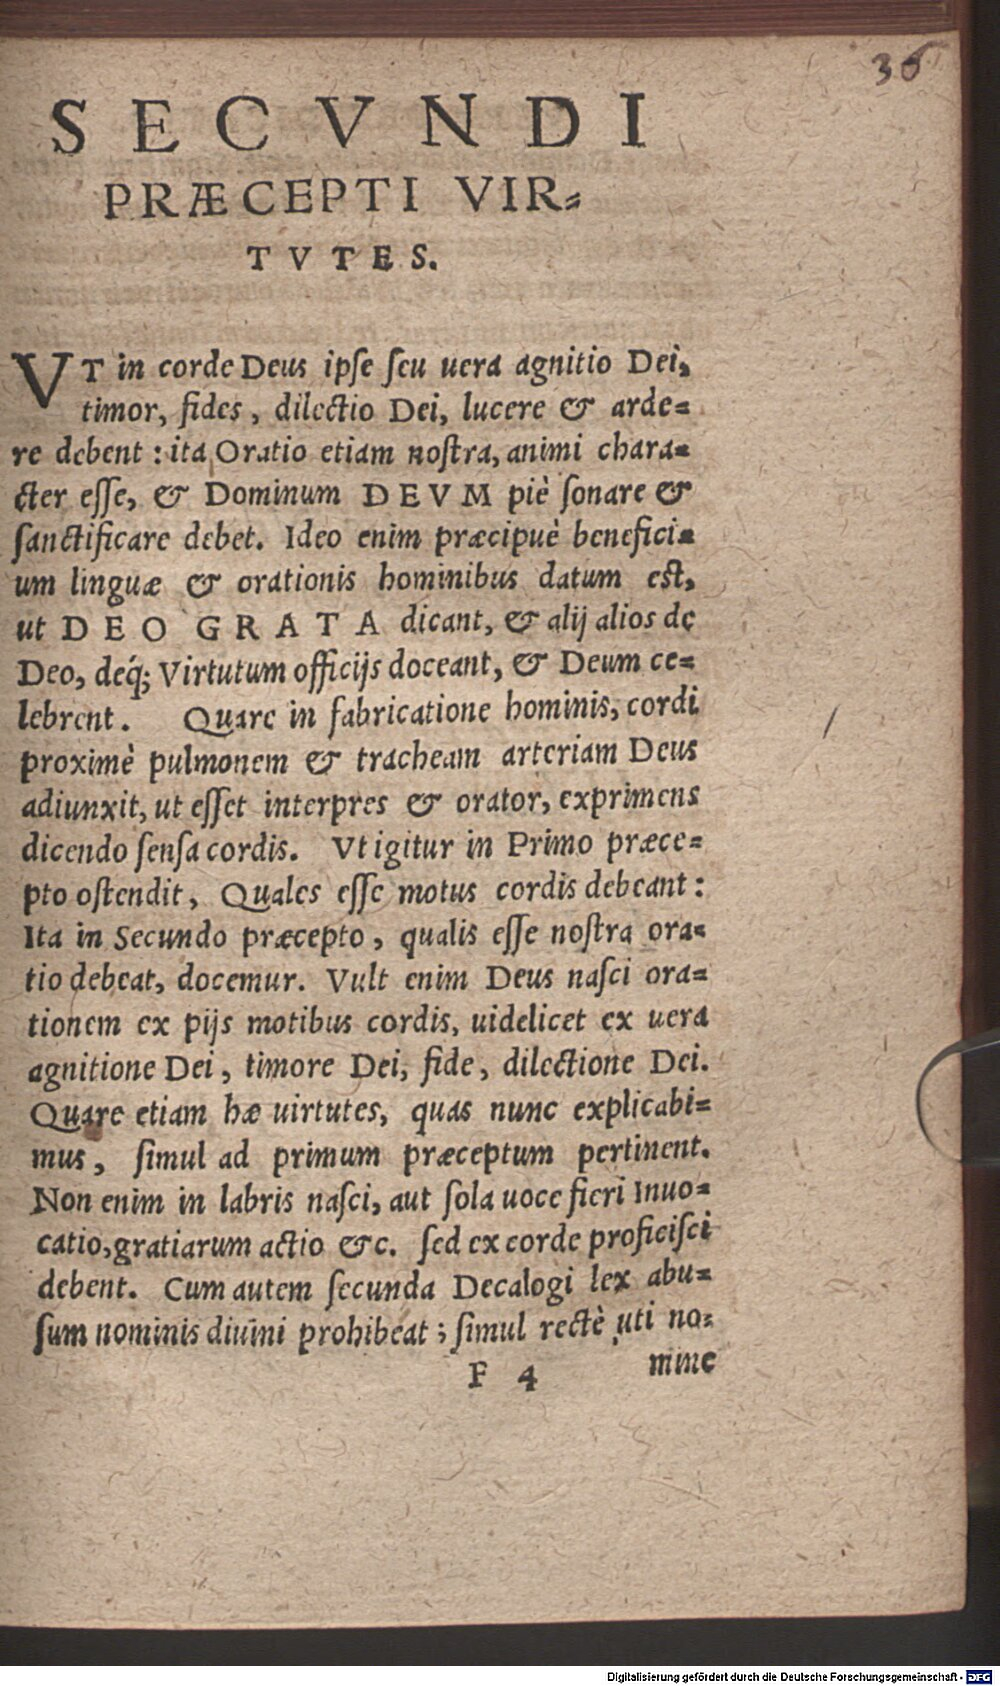 36
SECVNDI
PRÆCEPTI VIR-
TVTES.
VT in corde Deus ipſe ſeu uera agnitio Dei,
timor, fides, dilectio Dei, lucere & arde-
re debent: ita Oratio etiam noſtra, animi chara-
cter eſſe, & Dominum DEVM piè ſonare &
ſanctificare debet. Ideo enim præcipuè benefici-
um linguæ & orationis hominibus datum est,
ut DEO GRATA dicant, & alij alios de
Deo, deq́; Virtutum officijs doceant, & Deum ce-
lebrent. Quare in fabricatione hominis, cordi
proximè pulmonem & tracheam arteriam Deus
adiunxit, ut eſſet interpres & orator, exprimens
dicendo ſenſa cordis. Vt igitur in Primo præce-
pto oſtendit, Quales eſſe motus cordis debeant:
Ita in Secundo præcepto, qualis eſſe noſtra ora-
tio debeat, docemur. Vult enim Deus naſci ora-
tionem ex pijs motibus cordis, uidelicet ex uera
agnitione Dei, timore Dei, fide, dilectione Dei.
Quare etiam hæ uirtutes, quas nunc explicabi-
mus, ſimul ad primum præceptum pertinent.
Non enim in labris naſci, aut ſola uoce fieri Inuo-
catio, gratiarum actio &c. ſed ex corde proficiſci
debent. Cum autem ſecunda Decalogi lex abu-
ſum nominis diuini prohibeat; ſimul rectè uti no-
F 4 mine
Digitalisierung gefördert durch die Deutsche Forschungsgemeinschaft - DFG